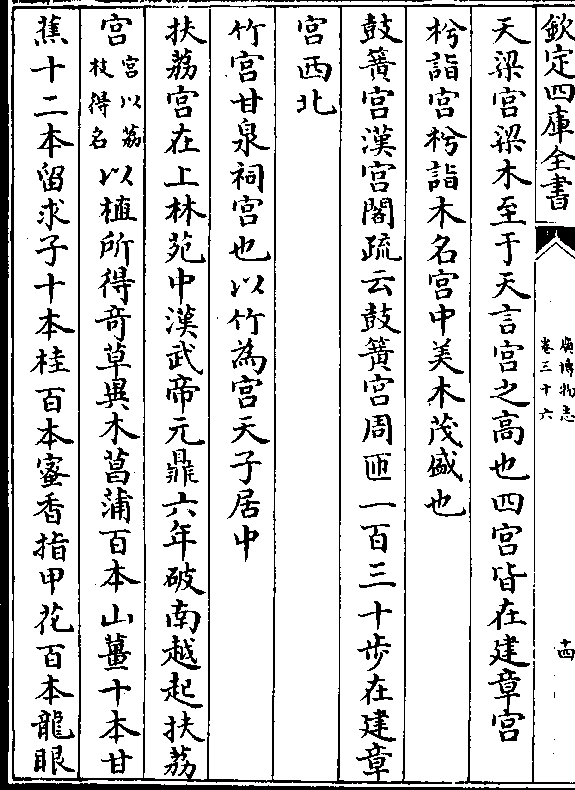 欽定四庫全書
廣博物志
卷三十六
十四
天梁宮梁木至于天言宮之高也四宮皆在建章宮
枍詣宮枍詣木名宮中美木茂盛也
鼓簧宮漢宮閣疏云鼓簧宮周匝一百三十步在建章
宮西北
竹宮甘泉祠宮也以竹為宮天子居中
扶荔宮在上林苑中漢武帝元鼎六年破南越起扶荔
宮宮以荔枝得名以植所得奇草異木菖蒲百本山薑十本甘
蕉十二本留求子十本桂百本蜜香指甲花百本龍眼